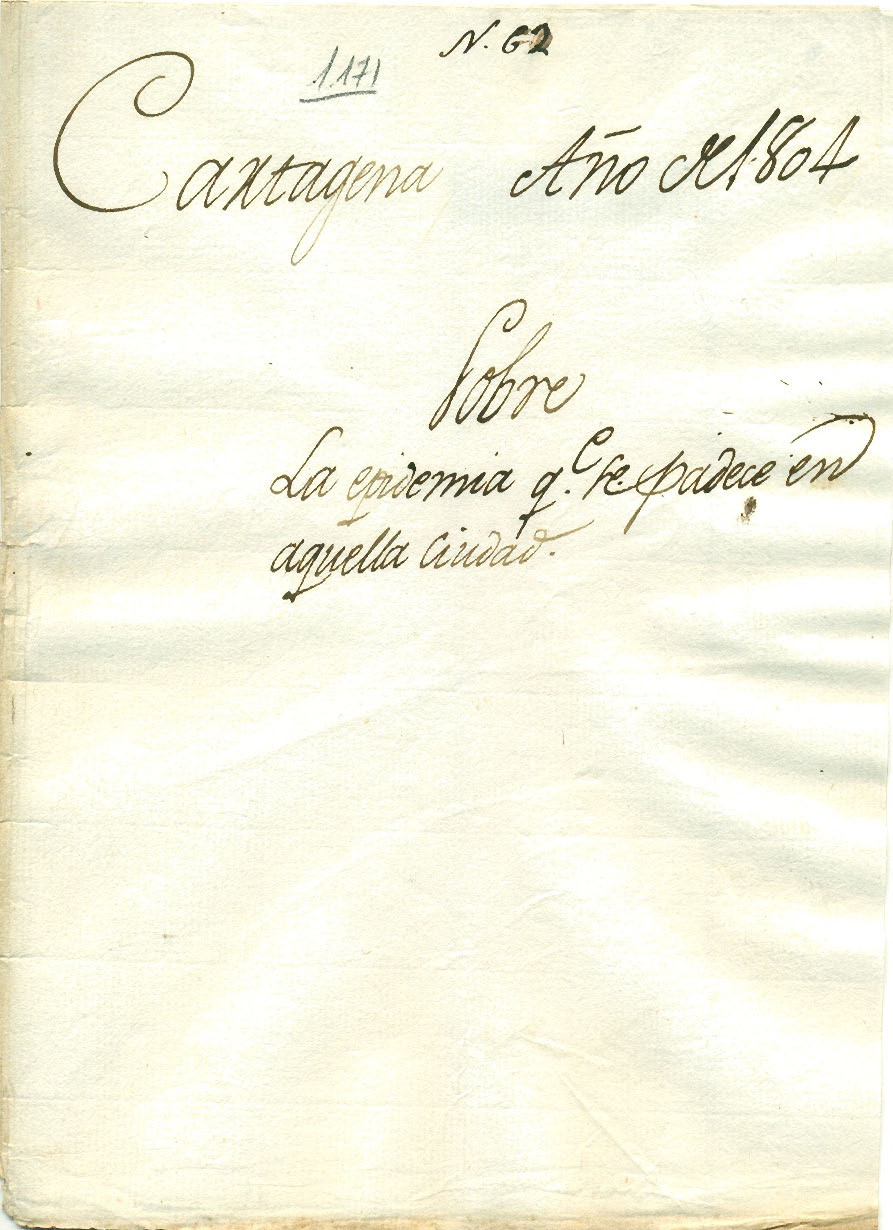 N. 62
1.171
Cartagena Año de 1804
Sobre
La epidemia q.e se padece en
aquella Ciudad.